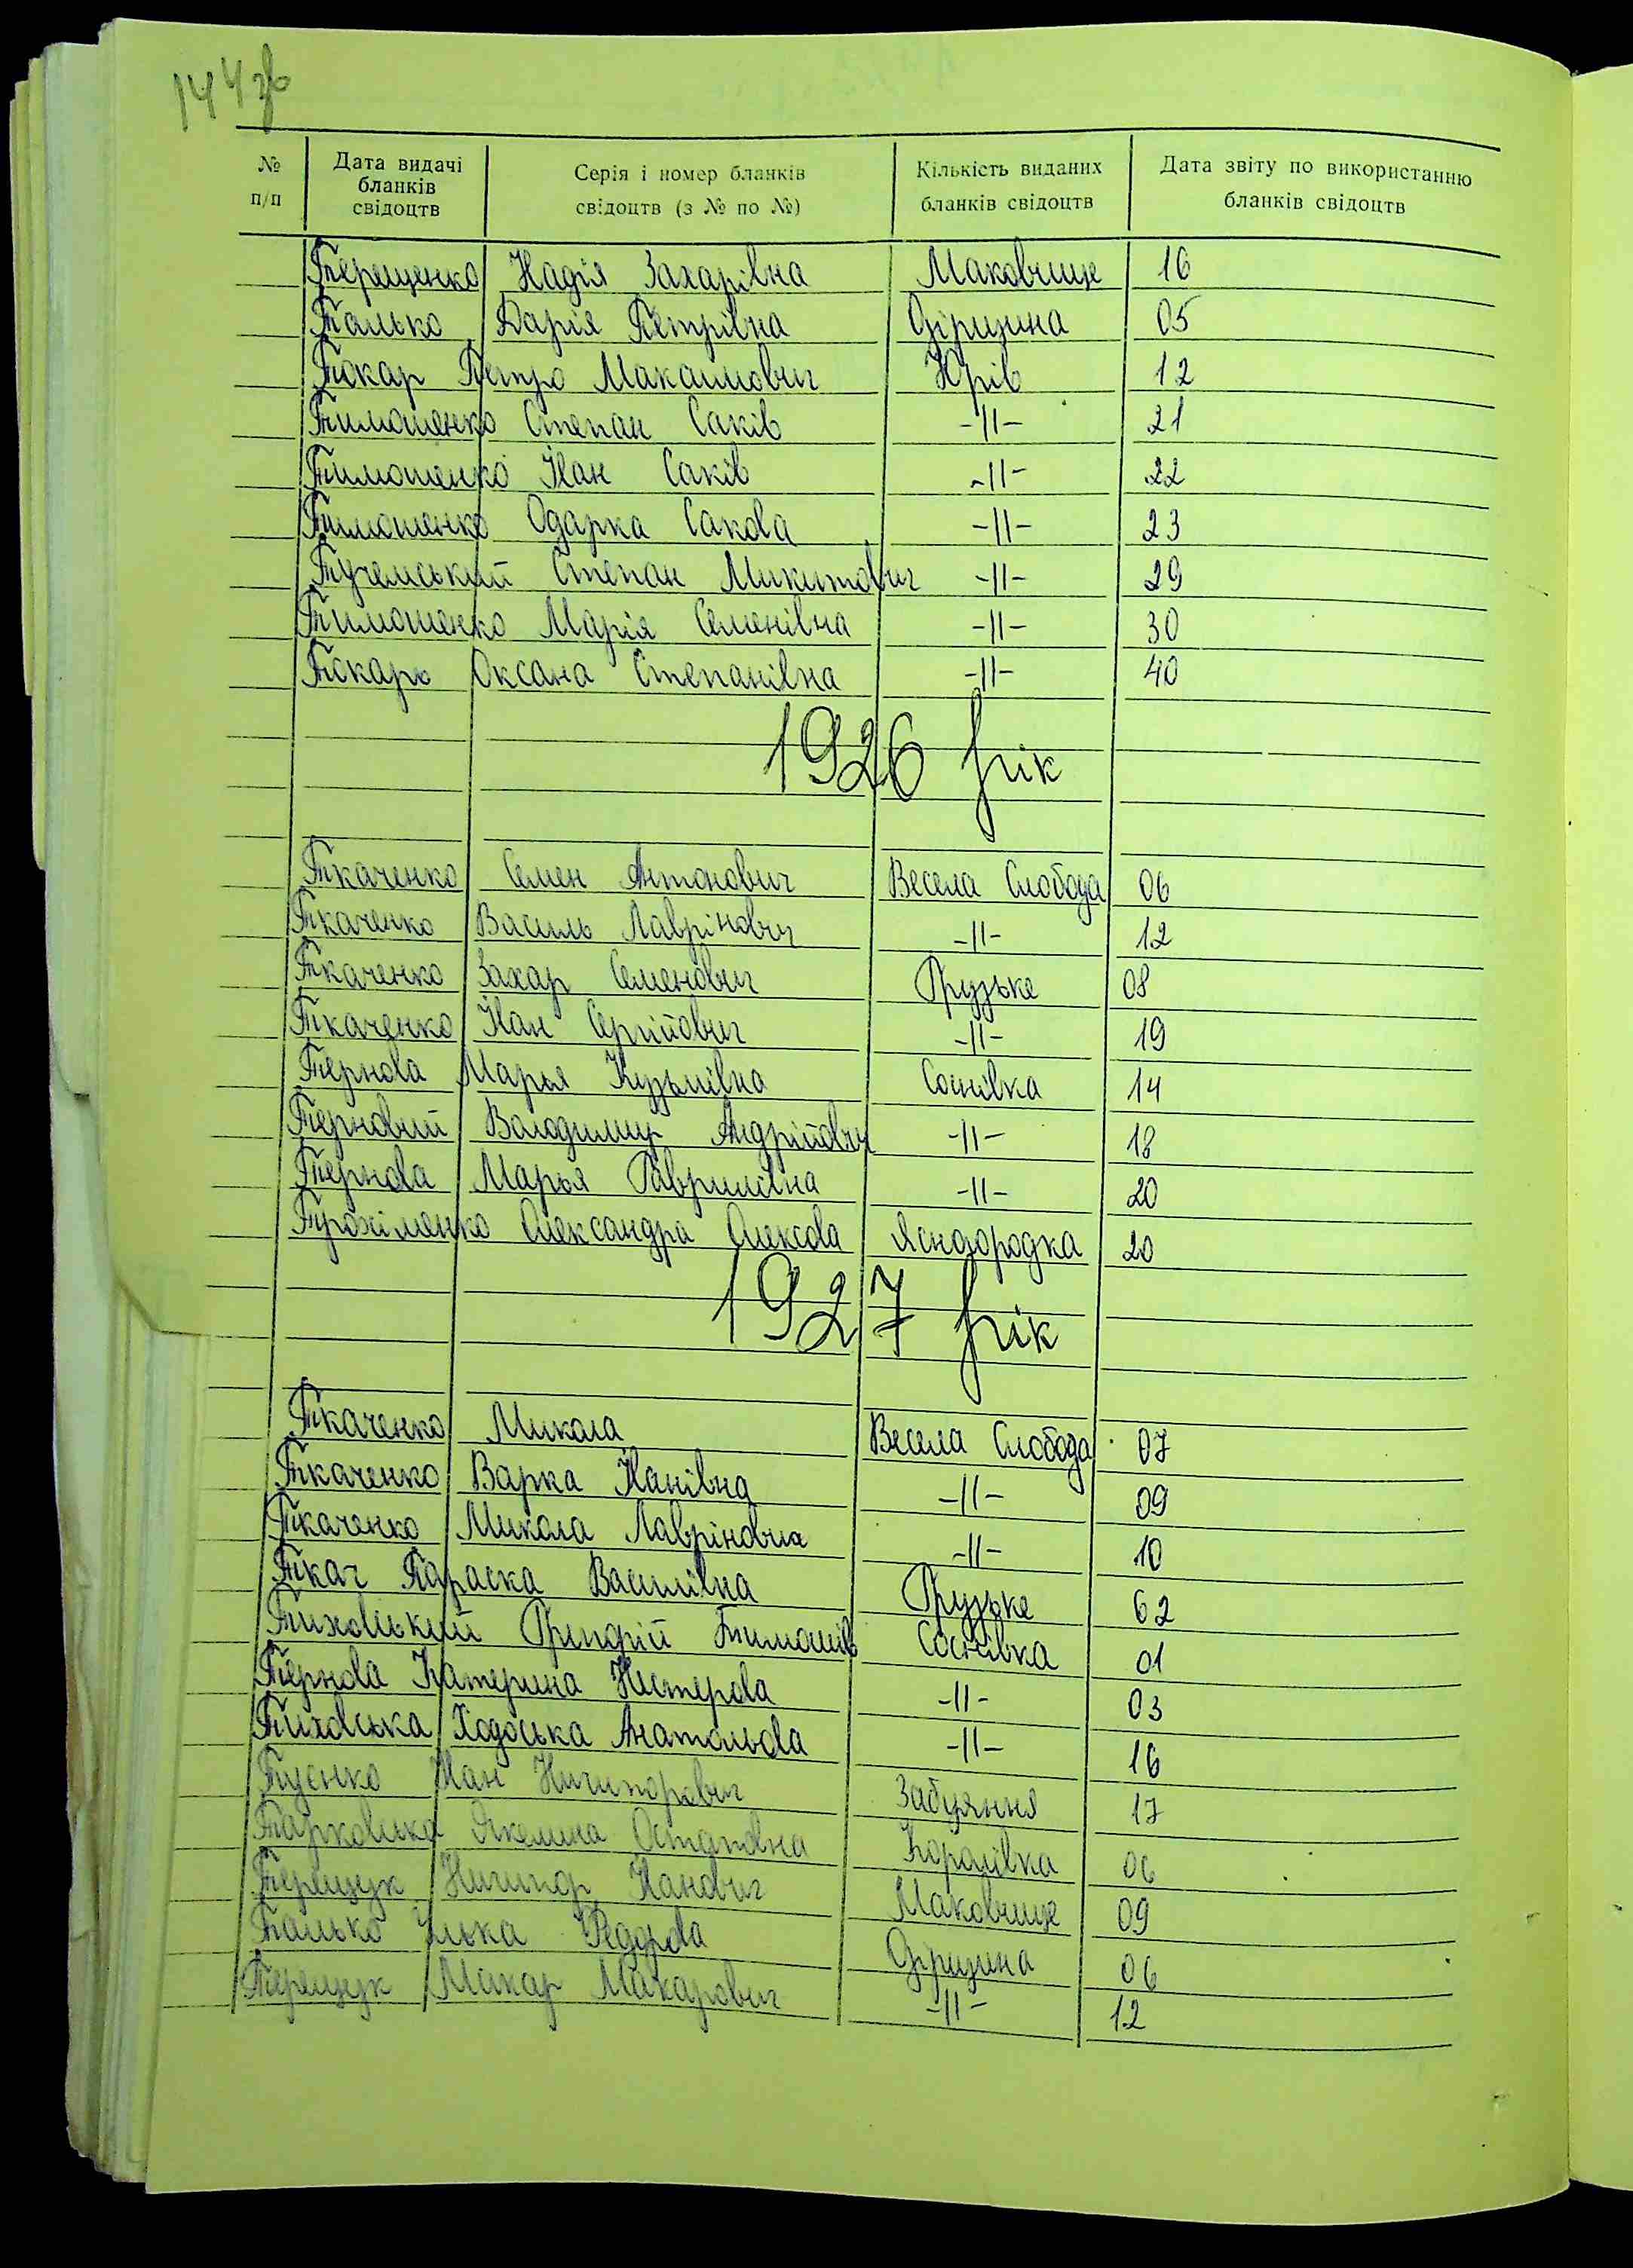 144 зв
№ п/п Дата видачі бланків свідоцтв Серія і номер бланків свідоцтв (з № по №) Кількість виданих бланків свідоцтв Дата звіту по використанню бланків свідоцтв
Терещенко Надія Захарівна Маковище 16
Талько Дарія Петрівна Діришна 05
Токар Петро Макаимович Юрів 12
Тимошенко Степан Саків -||- 21
Тимошенко Іван Саків -||- 22
Тимошенко Одарка Сакова -||- 23
Тучемський Степан Микитович -||- 29
Тимошенко Марія Семенівна -||- 30
Токарь Оксана Степанівна -||- 40
1926 рік
Ткаченко Семен Антонович Весела Слобода 06
Ткаченко Василь Лаврінович -||- 12
Ткаченко Захар Семенович Грузьке 08
Ткаченко Іван Сергійович -||- 19
Тернова Марья Кузьмівна Соснівка 14
Терновий Володимир Андрійович -||- 18
Тернова Марья Гаврилівна -||- 20
Трохіменко Олександра Олексова Ясногородка 20
1927 рік
Ткаченко Микола Весела Слобода 07
Ткаченко Варка Іванівна -||- 09
Ткаченко Микола Лаврінович -||- 10
Ткач Параска Василівна Грузьке 62
Тиховський Григорій Тимошів Соснівка 01
Тернова Катерина Нестерова -||- 03
Тиховська Ходоська Анатольова -||- 16
Іван Ничипорович Забуяння 17
Тарковська Якелина Остапівна Королівка 06
Терещук Ничипор Іванович Маковище 09
Талько Улька Федорова Діришна 06
Терещук Макар Макарович -||- 12